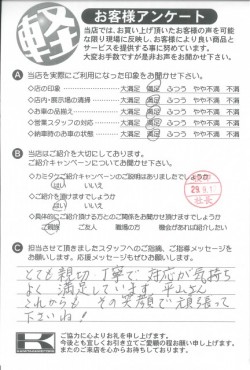 軽
お客様アンケート
当店では、お買い上げ頂いたお客様の声を可能
な限り現場に反映し、お客様により良い商品と
サービスを提供する事に努めています。
大変お手数ですが是非お声をお聞かせ下さい。
A 当店を実際にご利用になった印象をお聞かせ下さい。
◇店の印象 大満足 満足 ふつう やや不満 不満
◇店内・展示場の清掃 大満足 満足 ふつう やや不満 不満
◇お車の品揃え 大満足 満足 ふつう やや不満 不満
◇営業スタッフの対応 大満足 満足 ふつう やや不満 不満
◇納車時のお車の状態 大満足 満足 ふつう やや不満 不満
B 当店はご紹介を大切にしております。
ご紹介キャンペーンについてお聞かせ下さい。
◇カミタケご紹介キャンペーンのご説明はありましたでしょうか
はい いいえ
◇ご紹介を頂けますでしょうか
はい いいえ
◇具体的にご紹介頂ける方とのご関係をお聞かせ頂けますでしょうか
ご親戚 ご友人 職場の方 機会があれば紹介したい
社長
C 担当させて頂きましたスタッフへのご指摘、ご指導メッセージを
お願いします。応援メッセージもぜひお願いします。
とても親切 丁寧で 対応が気持ち
よく 満足しています。平山さん
これからも その笑顔で頑張って
下さいね!
ご協力に心よりお礼を申し上げます。
今後とも宜しくお引き立てご愛顧の程お願い申し上げます。
またのご来店を心からお待ちしております。